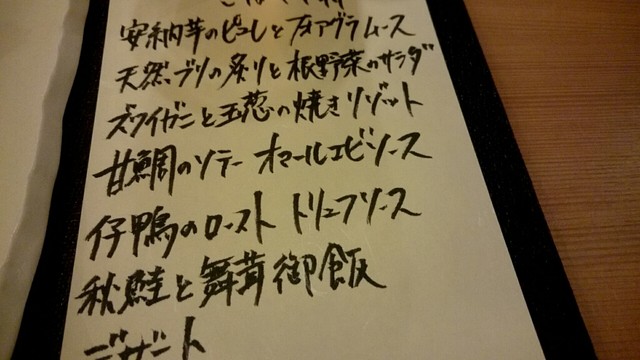 安納芋のピュレとフォアグラムース
天然ブリの炙りと根野菜のサラダ
ズワイガニと玉葱の焼きリゾット
甘鯛のソテー オマールエビソース
仔鴨のロースト トリュフソース
秋鮭と舞茸御飯
デザート